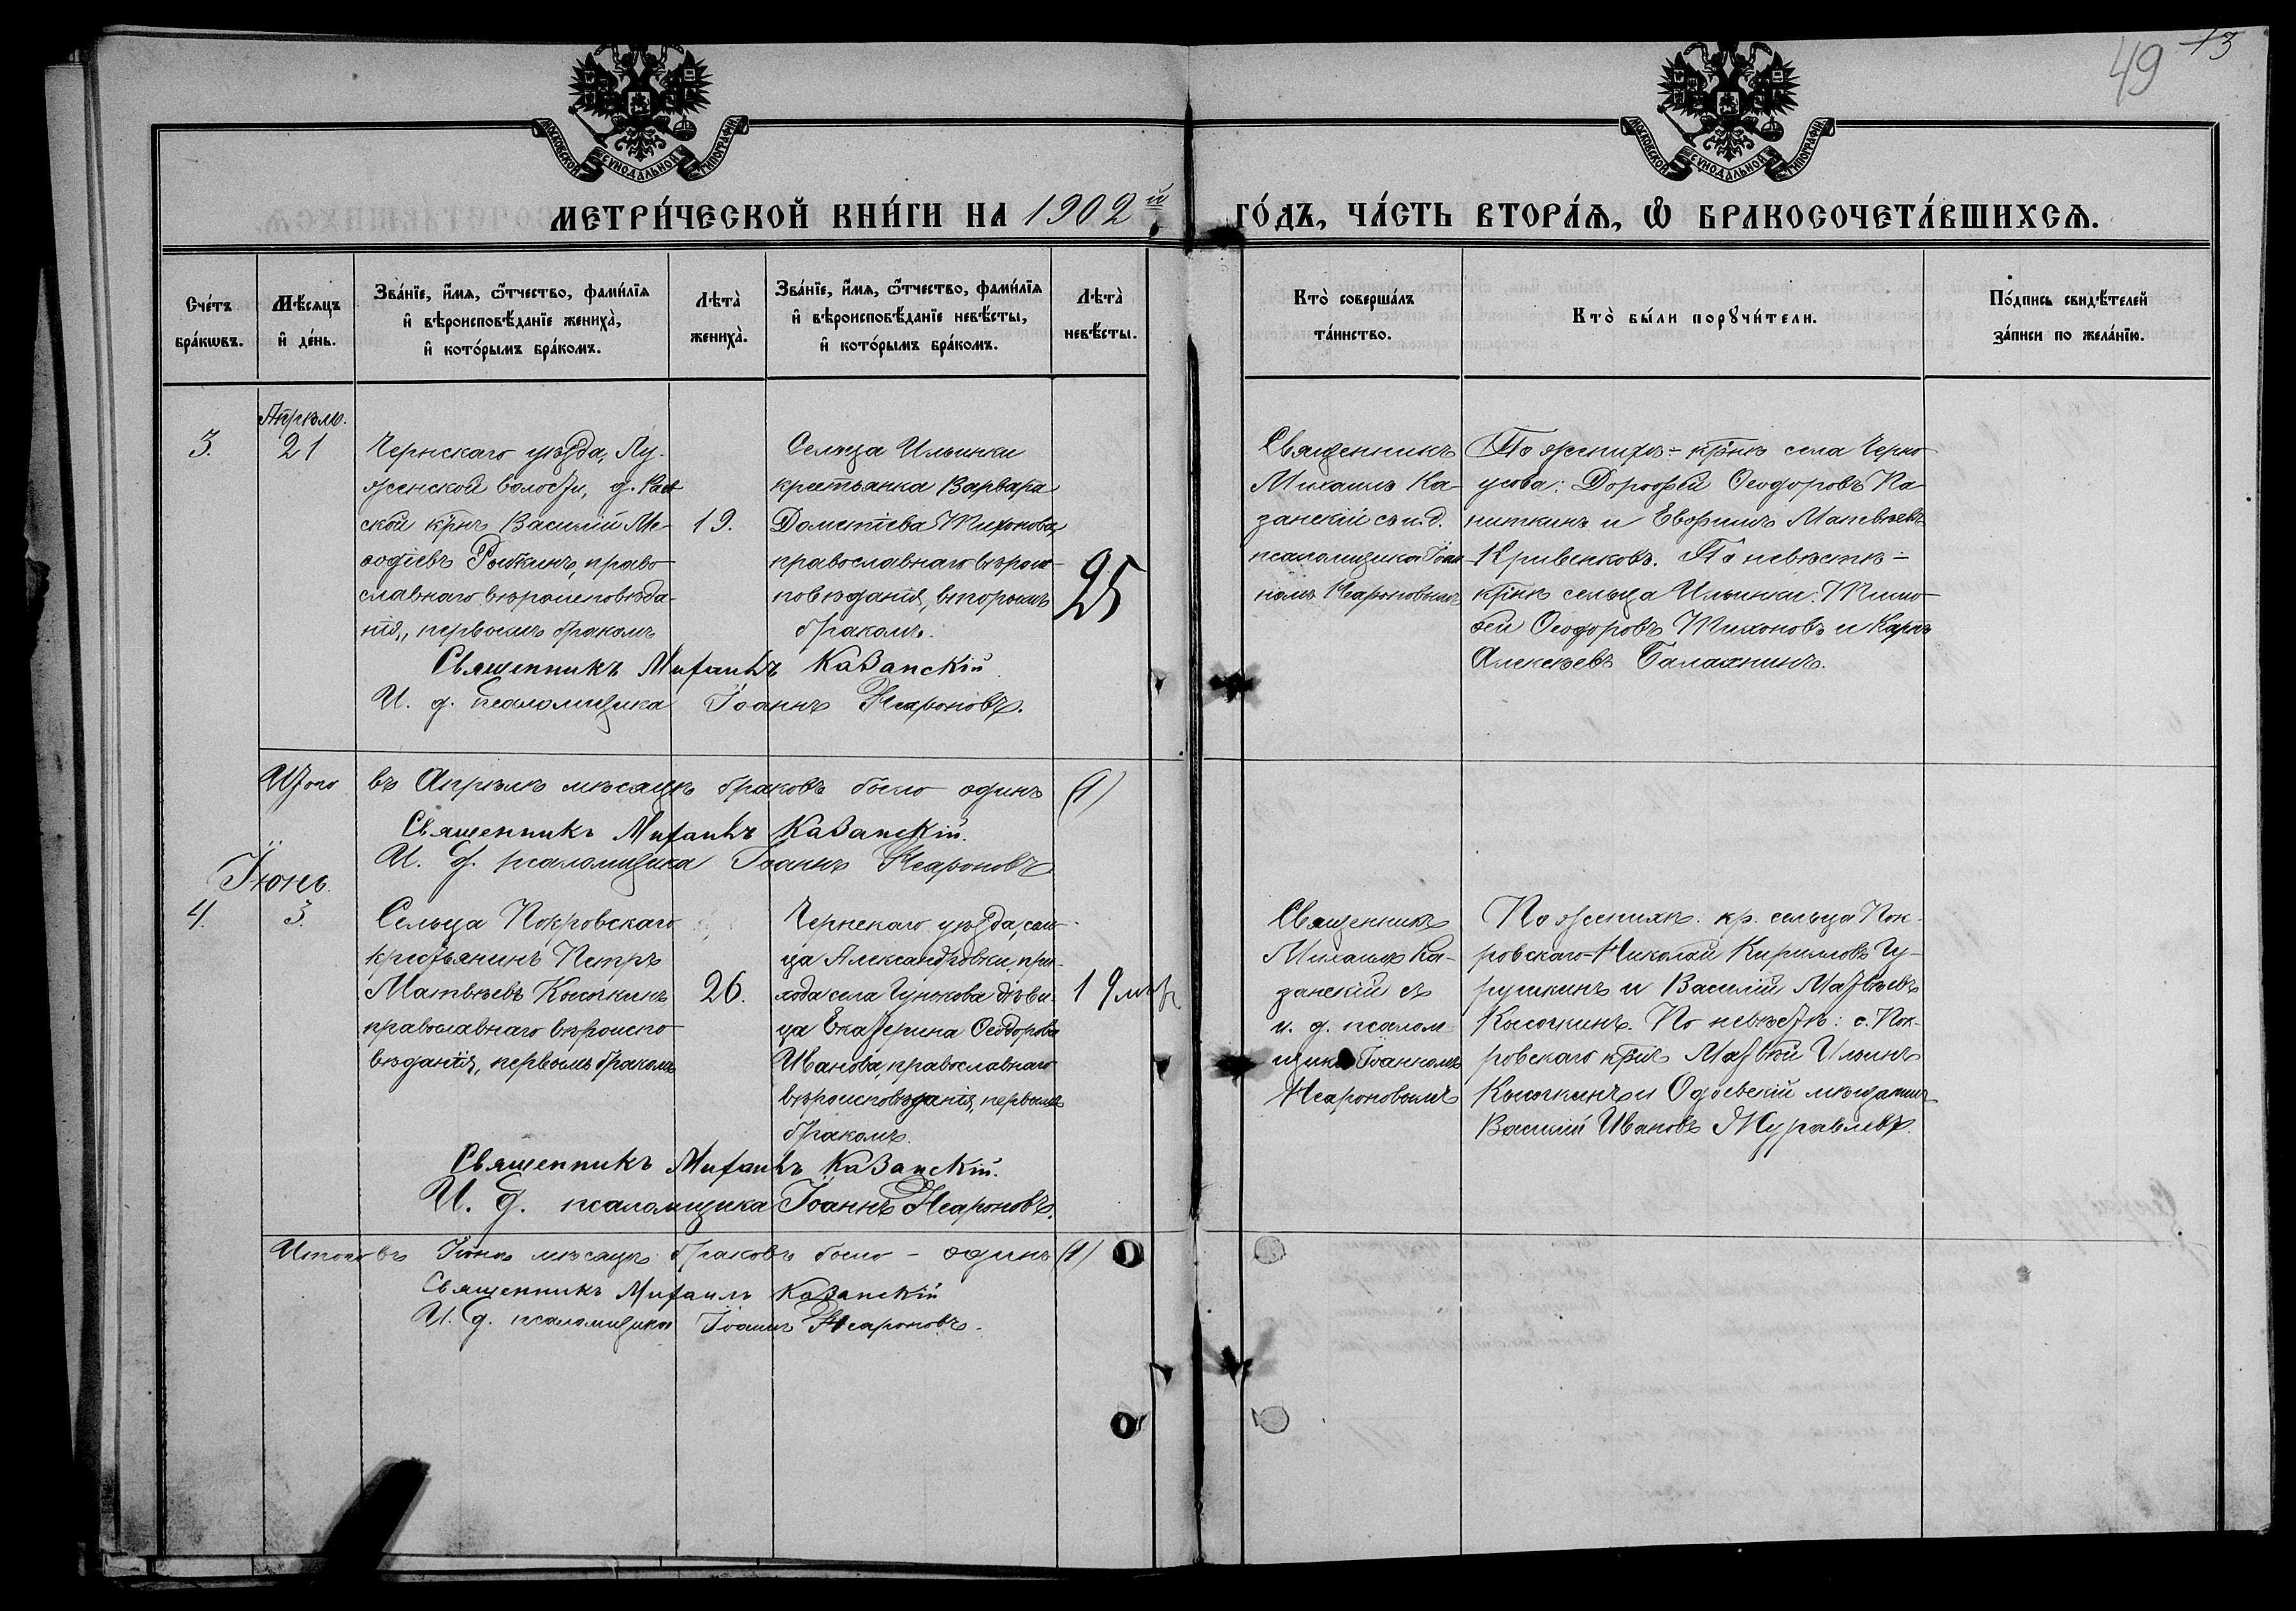 49 13
МОСКОВСКОЙ СѴНОДАЛЬНОЙ ТИПОГРАФІИ
МОСКОВСКОЙ СѴНОДАЛЬНОЙ ТИПОГРАФІИ
МЕТРИ́ЧЕСКОЙ КНИ́ГИ НА 1902й
ГО́ДЪ, ЧА́СТЬ ВТОРА́Я, Ѡ БРАКОСОЧЕТА́ВШИХСЯ.
Сче́тъ
бра́кωвъ.
Мѣ́сяцъ
и҆ де́нь.
Зва́нїе, и҆́мя, ѻ҆́тчество, фами́лїя
и҆ вѣроисповѣ́данїе жениха̀,
и҆ кото́рымъ бра́комъ.
Лѣта̀
жениха̀.
Зва́нїе, и҆́мя, ѻ҆́тчество, фами́лїя
и҆ вѣроисповѣ́данїе невѣ́сты,
и҆ кото́рымъ бра́комъ.
Лѣта̀
невѣ́сты.
Кто̀ соверша́лъ
та́инство.
Кто̀ бы́ли порꙋчи́тели.
По́дпись свидѣ́телей
за́писи по жела́нїю.
3.
Апрѣль.
21
Чернскаго уѣзда, Лу-
женской волости, д.
ской кр҃нъ Василій Ме-
ѳодіевъ право
славнаго вѣроисповѣда-
нія, первымъ бракомъ
19.
Сельца Ильинки
крестьянка Варвара
Дометіева Тихонова,
православнаго вѣроис-
повѣданія, вторымъ
бракомъ.
25
Священникъ Михаилъ Казанскій.
И. д. псаломщика Іоаннъ Неароновъ.
Священникъ
Михаилъ Ка-
занскій съ и. д.
псаломщика Іоан
номъ Неароновымъ
По женихѣ - кр҃нъ села Черно
усова: Дороѳей Ѳеодоровъ Ка
питкинъ и Евѳимъ Матвѣевъ
Кривенковъ. По невѣстѣ -
кр҃нъ сельца Ильинки: Тимо
ѳей Ѳеодоровъ Тихоновъ и Карпъ
Алексѣевъ Балахнинъ.
Итого въ Апрѣлѣ мѣсяцѣ браковъ было одинъ (1)
Священникъ Михаилъ Казанскій.
И. д. псаломщика Іоаннъ Неароновъ
Іюнь.
4. 3.
Сельца Покровскаго
крестьянинъ Петръ
Матвѣевъ Кысочкинъ
православнаго вѣроиспо
вѣданія, первымъ бракомъ
26.
Чернскаго уѣзда, сель-
ца Александровки, при-
хода села Гунькова дѣви-
ца Екатерина Ѳеодорова
Иванова, православнаго
вѣроисповѣданія, первымъ
бракомъ.
19 лѣтъ
Священникъ Михаилъ Казанскій.
И. д. псаломщика Іоаннъ Неароновъ.
Священникъ
Михаилъ Ка-
занскій съ
и. д. псалом
щика Іоанномъ
Неароновымъ
По женихѣ: кр. сельца Пок-
ровскаго Николай Кирилловъ Чу-
рушкинъ и Василій Матвѣевъ
Кысочкинъ. По невѣстѣ: с. Пок-
ровскаго кр҃нъ Матвѣй Ильинъ
Кысочкинъ и Одоевскій мѣщанинъ
Василій Ивановъ Журавлевъ.
Итого въ Іюнѣ мѣсяцѣ браковъ было - одинъ (1)
Священникъ Михаилъ Казанскій
И. д. псаломщика Іоаннъ Неароновъ.